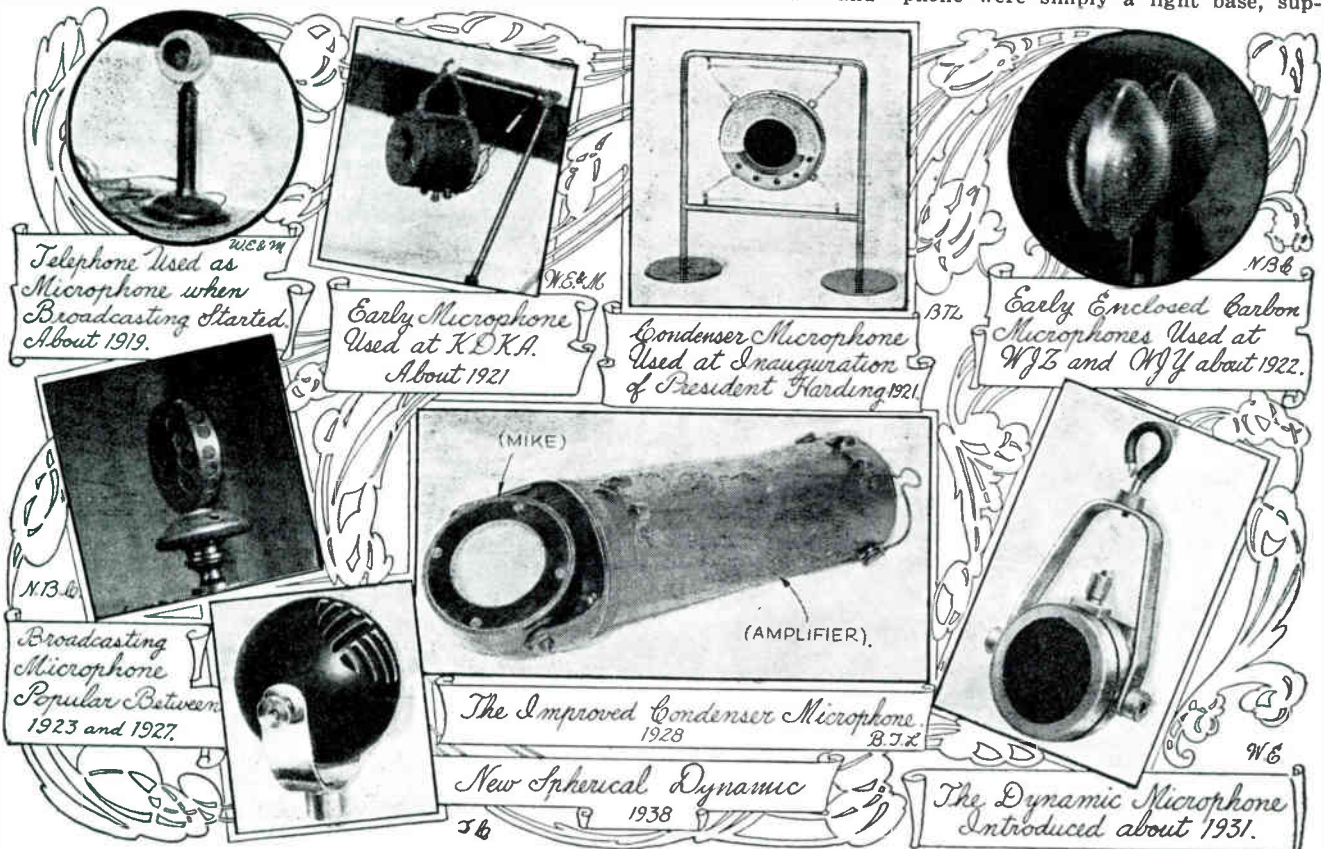 phone were simply a light base, sup-
W.E&M
Telephone Used as
Microphone when
Broadcasting Started.
About 1919.
W.E.&M
Early Microphone
Used at KDKA.
About 1921
BTL
Condenser Microphone
Used at Inauguration
of President Harding 1921.
N.B.Co
Early Enclosed Carbon
Microphones Used at
WJZ and WJY about 1922.
N.B.Co.
Broadcasting
Microphone
Popular Between
1923 and 1927.
(MIKE)
(AMPLIFIER).
The Improved Condenser Microphone.
1928
B.T.L
New Spherical Dynamic
1938
W.E
The Dynamic Microphone
Introduced about 1931.